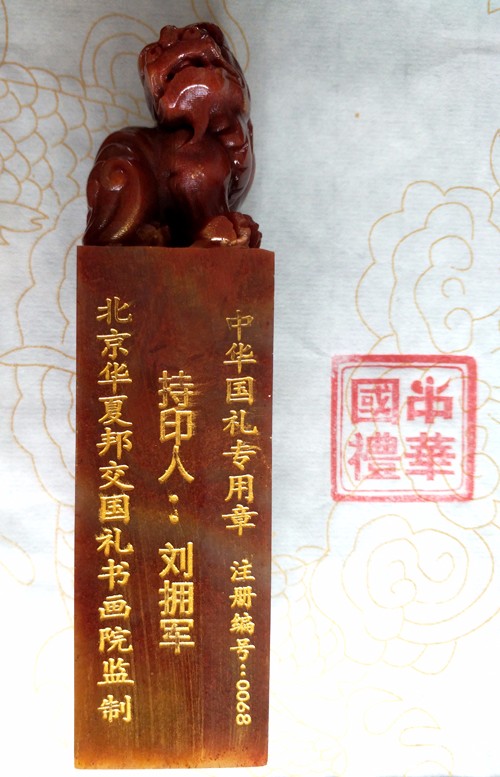 中华国礼专用章 注册编号:0068
持印人：刘拥军
北京华夏邦交国礼书画院监制
中華
國禮